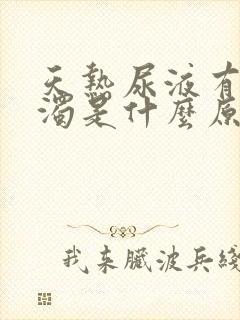 天热尿液有
濁是什麼原
我来臓波兵綫